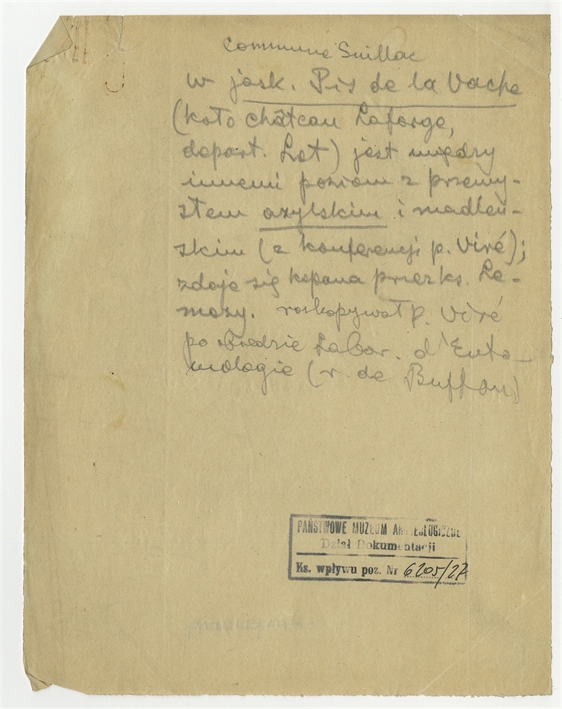 Commune Suillac
w jask. Pis de la Vache
(koło château Laforge,
depart. Lot) jest między
innemi poziom z przemy-
słem azylskim i madleń-
skim (z konferencji p. Viré);
zdaje się kopana przez ks. Le-
mozy. rozkopywał p. Viré
po obiedzie Labor. d'Ento-
mologie (r. de Buffon)
PAŃSTWOWE MUZEUM ARCHEOLOGICZNE
Dział Dokumentacji
Ks. wpływu poz. Nr 6205/27